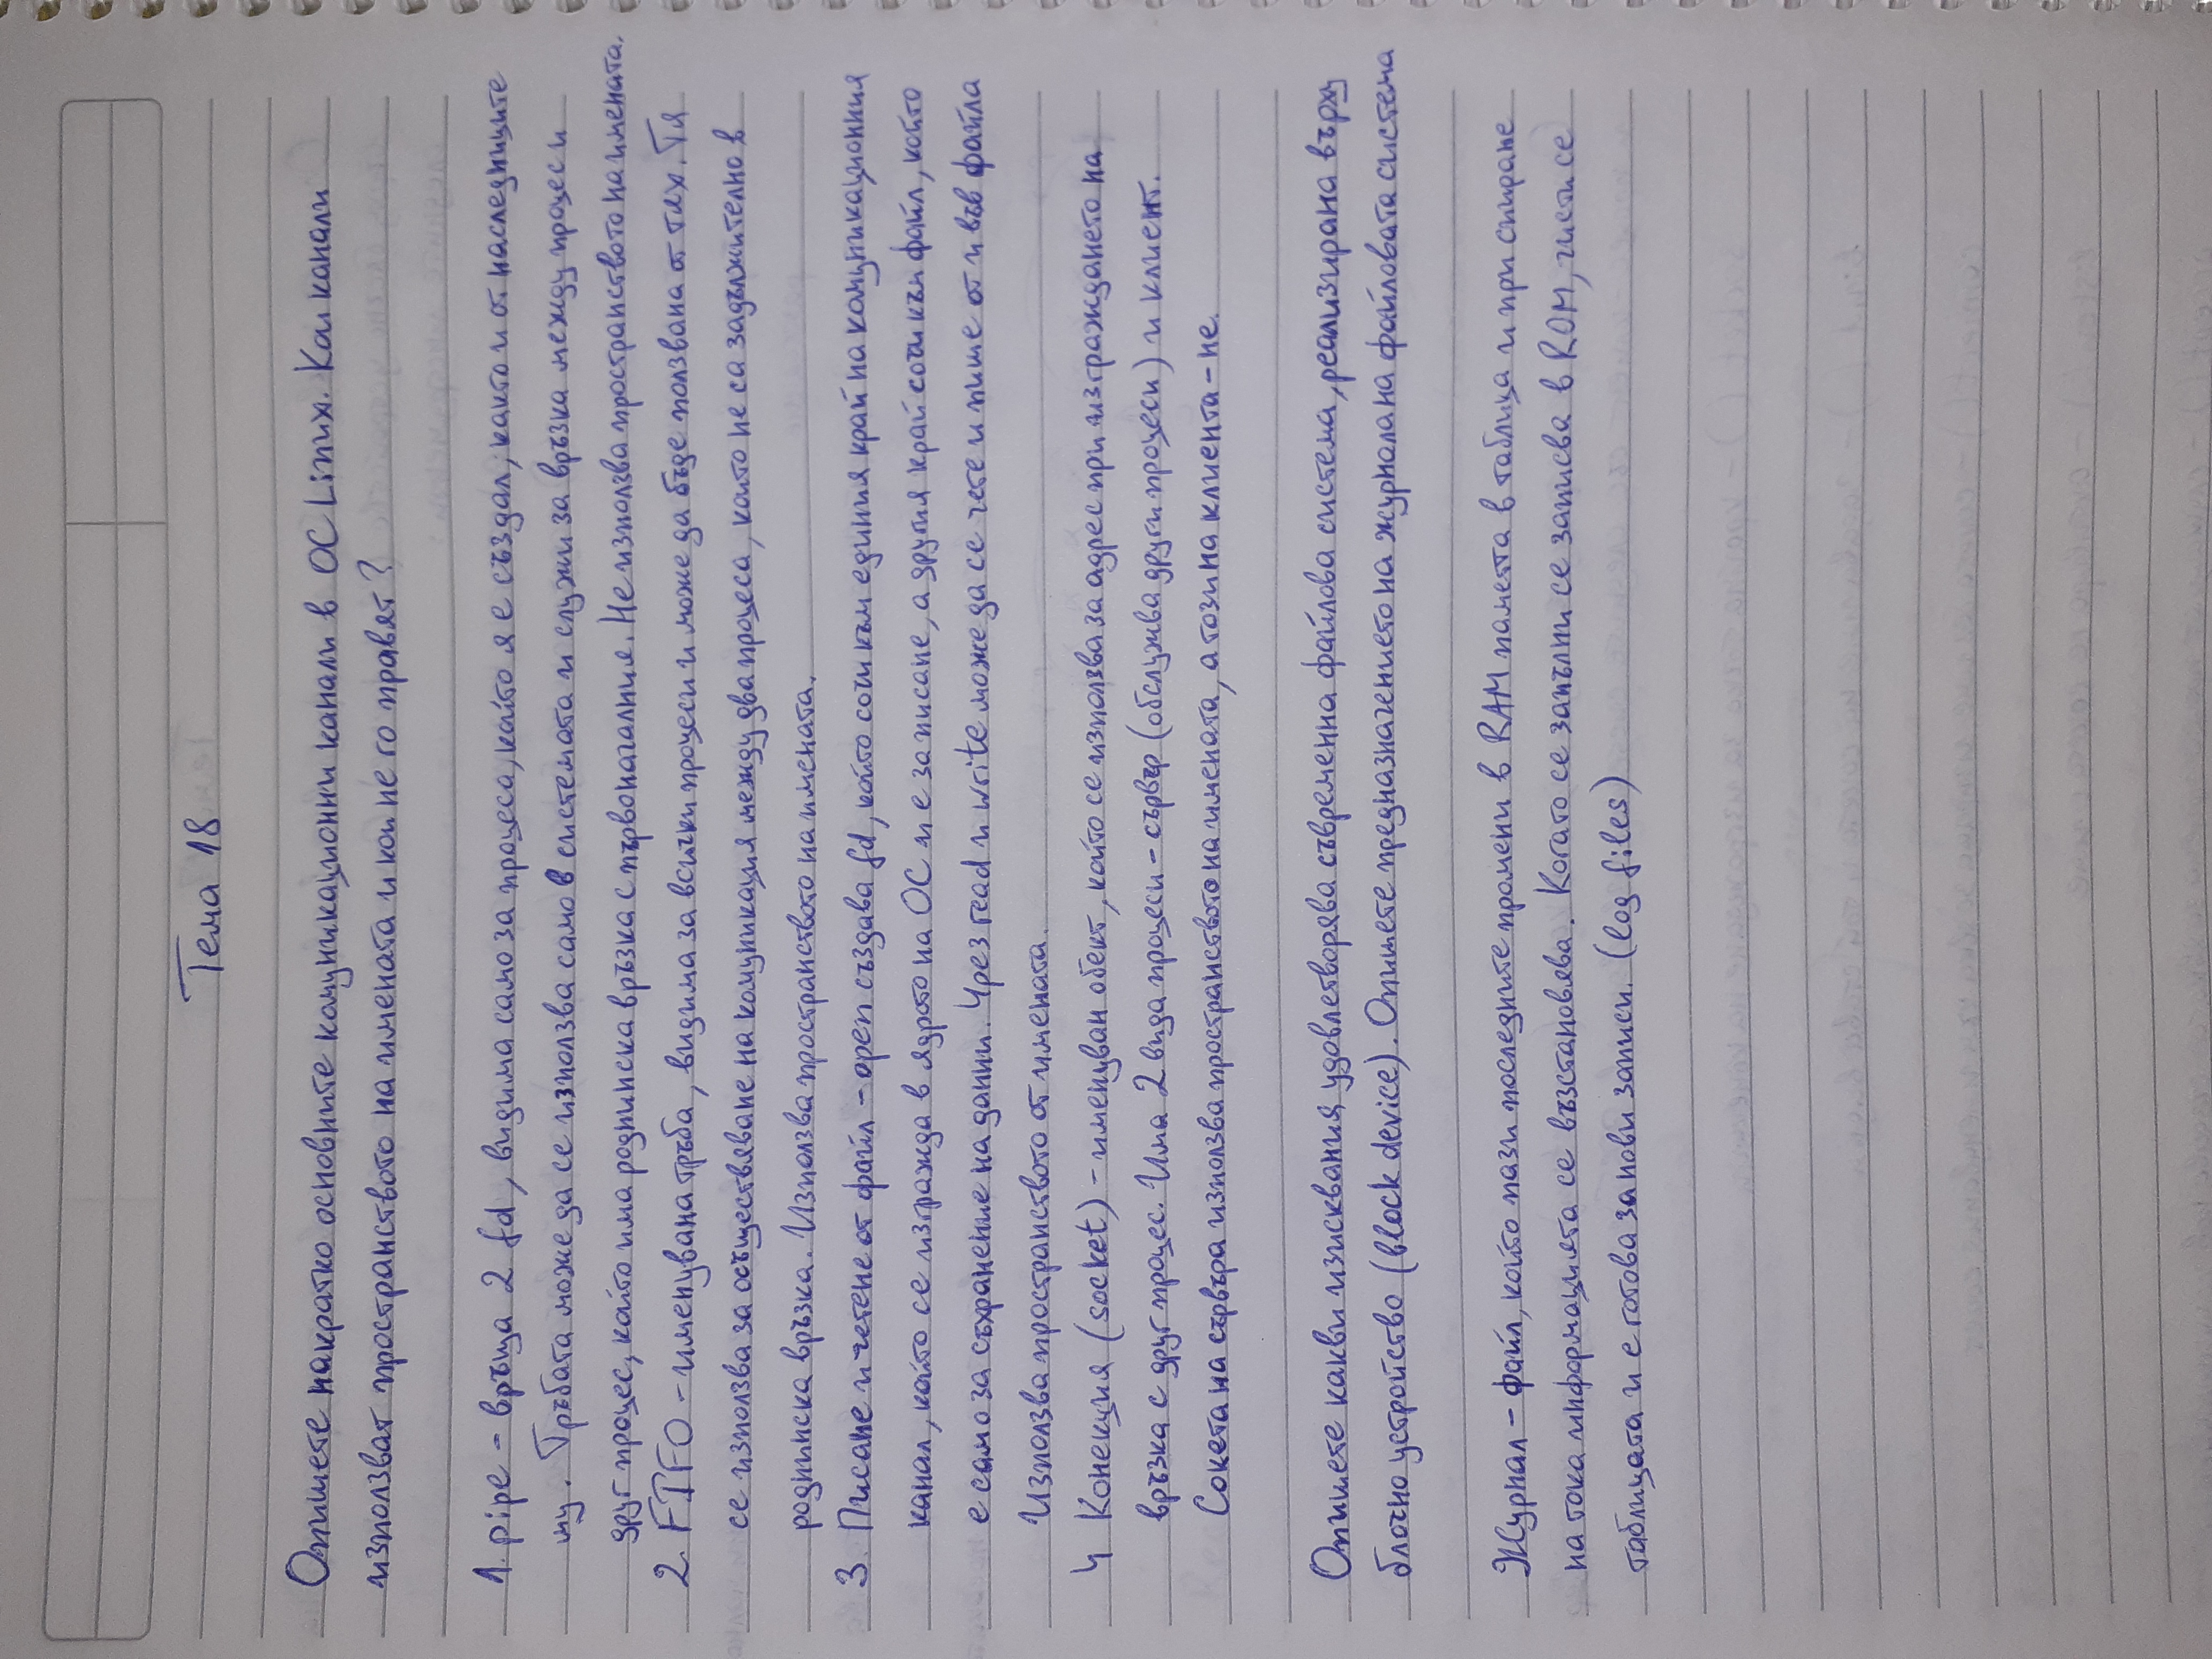 Тема 18
Опишете накратко основните комуникационни канали в ОС Linux. Кои канали
използват пространството на имената и кои не го правят?
1. pipe - връща 2 fd, видима само за процеса, който я е създал, както и от наследниците
му. Тръбата може да се използва само в системата и служи за връзка между процес и
друг процес, който има роднинска връзка с първоначалния. Не използва пространството на имената.
2. FIFO - именувана тръба, видима за всички процеси и може да бъде ползвана от тях. Тя
се използва за осъществяване на комуникация между два процеса, които не са задължително в
роднинска връзка. Използва пространството на имената.
3. Писане и четене от файл - open създава fd, който сочи към единия край на комуникационния
канал, който се изгражда в ядрото на ОС и е за писане, а другия край сочи към файл, който
е само за съхранение на данни. Чрез read и write може да се чете и пише от и във файла
Използва пространството от имената.
4 Конекция (socket) - именуван обект, който се използва за адрес при изграждането на
връзка с друг процес. Има 2 вида процеси - сървър (обслужва други процеси) и клиент.
Сокета на сървъра използва пространството на имената, а този на клиента - не.
Опишете какви изисквания удовлетворява съвременна файлова система, реализирана върху
блочно устройство (block device). Опишете предназначението на журнала на файловата система
Журнал - файл, който пази последните промени в RAM паметта в таблица и при спиране
на тока информацията се възстановява. Когато се запълни се записва в ROM, чисти се
таблицата и е готова за нови записи. (log files)